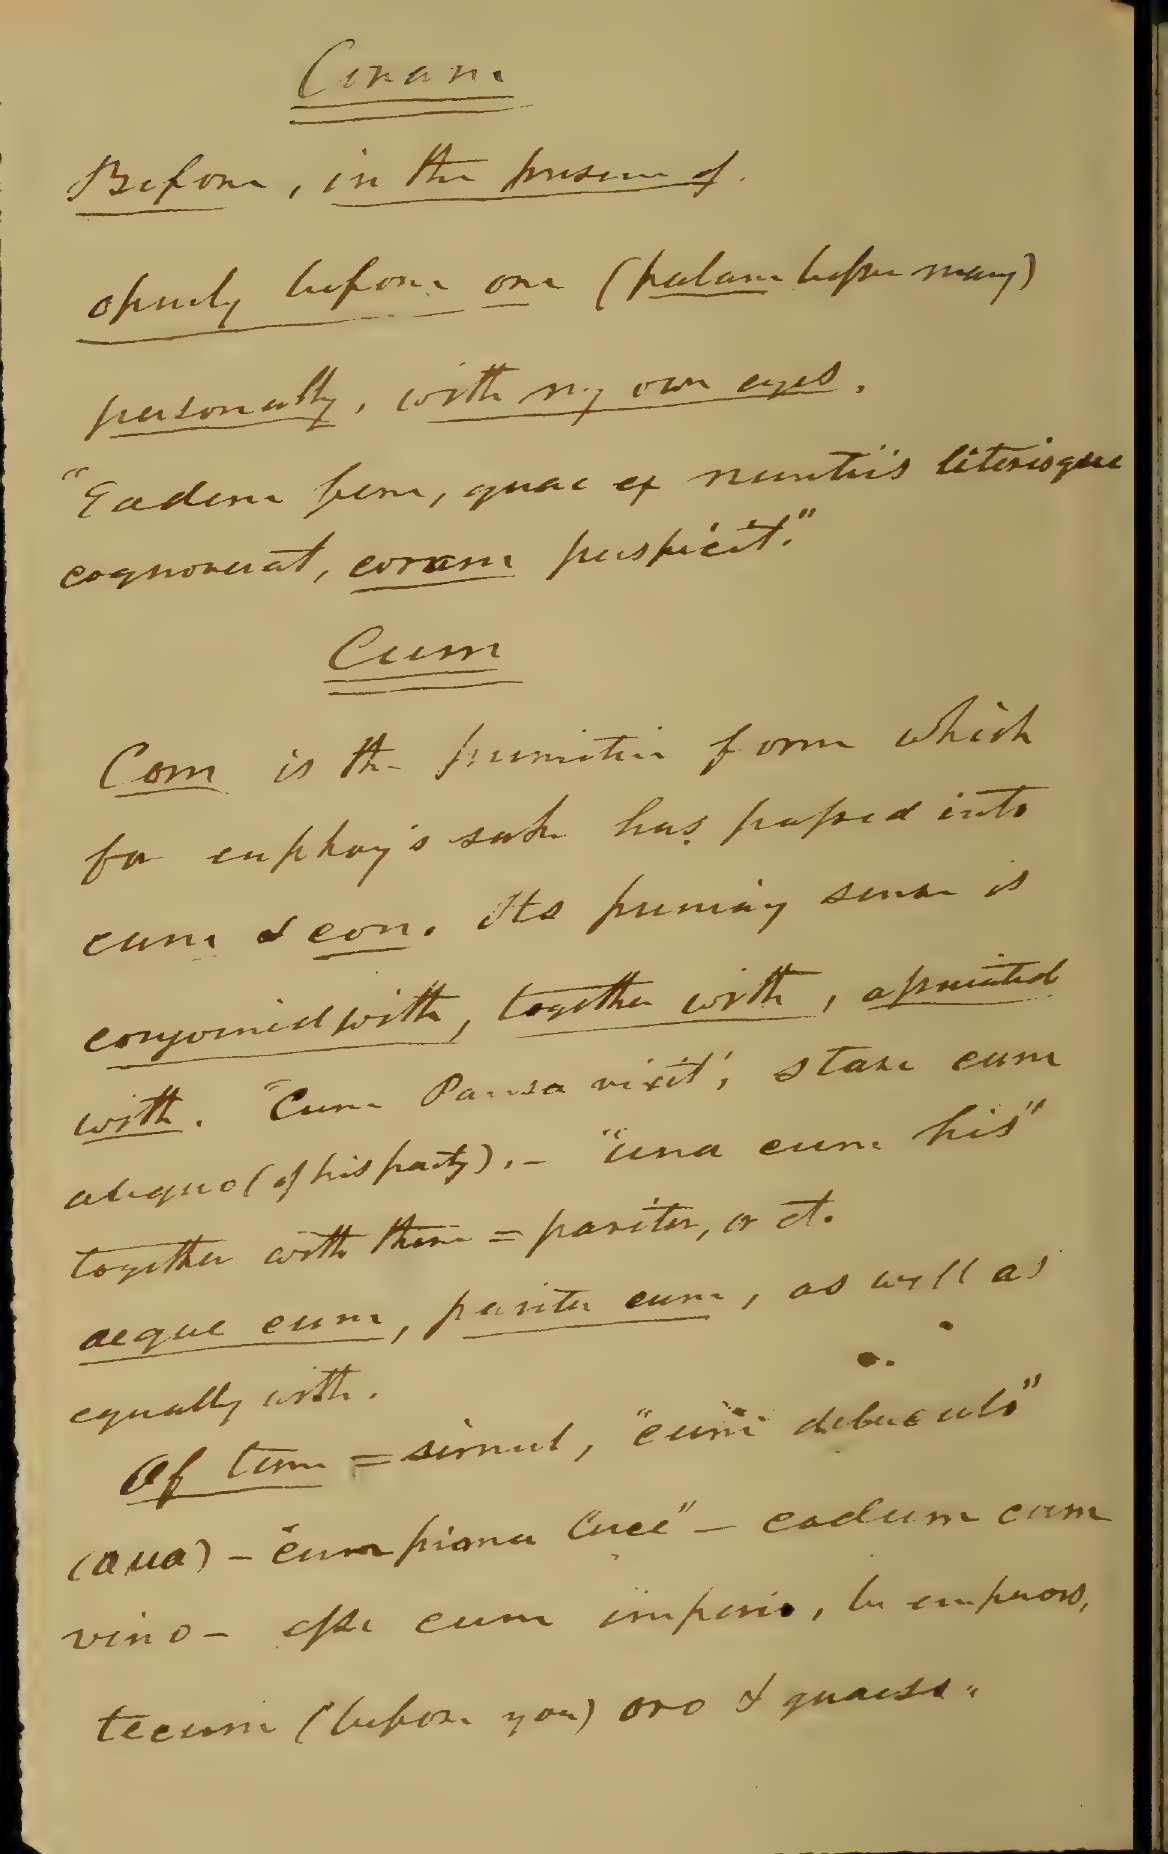 Coram
Before, in the presence of.
openly before one (palam before many)
personally, with my own eyes.
"Eadem fere, quae ex nuntiis literisque
cognoverat, coram perspicit."
Cum
Com is the primitive form which
for euphony's sake has passed into
cum & con. Its primary sense is
conjoined with, together with, associated
with. "Cum Pansa vixit", stare cum
aliquo (of his party). – "una cum his"
together with them = pariter, or et.
aeque cum, pariter cum, as well as
equally with.
Of time = simul, "cum diluculo"
– "cum prima luce" – eadum cum
vino – esse cum imperio, be emperors,
tecum (before you) oro & quaeso.